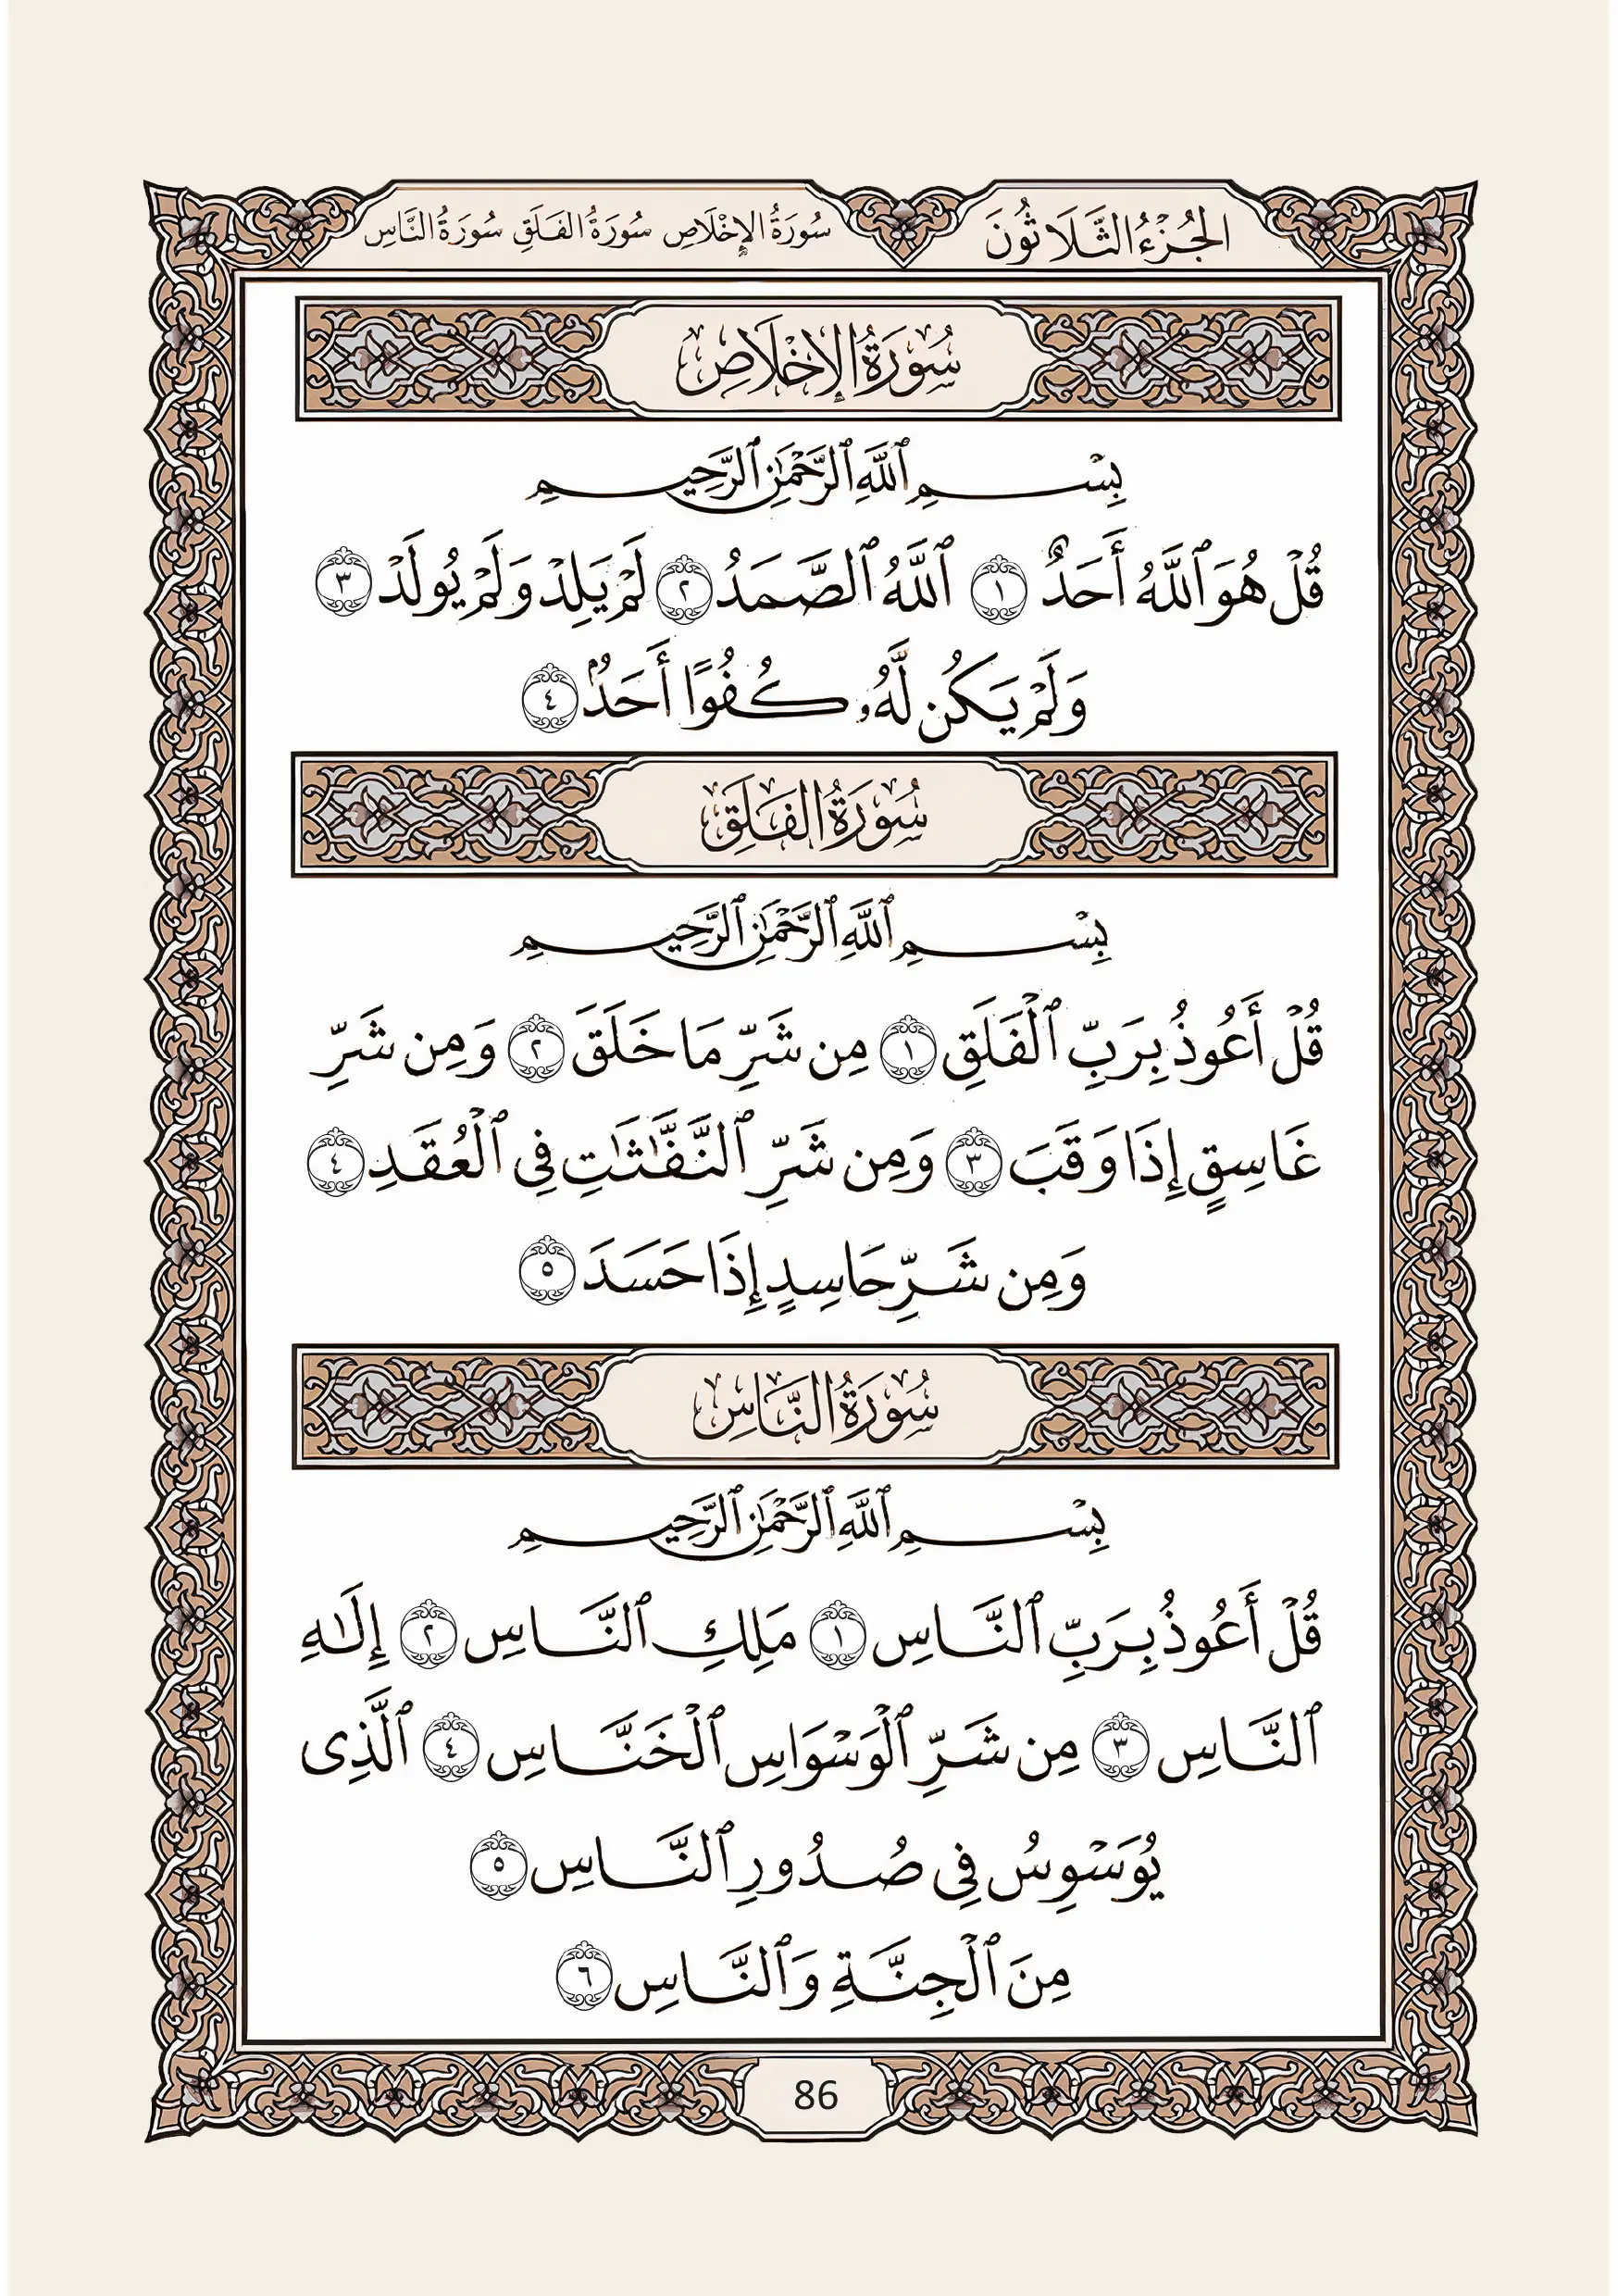 الجُزْءُ الثَّلَاثُونَ
سُورَةُ الإِخْلَاصِ سُورَةُ الفَلَقِ سُورَةُ النَّاسِ
سُورَةُ الإِخْلَاصِ
بِسْمِ ٱللَّهِ ٱلرَّحْمَٰنِ ٱلرَّحِيمِ
قُلْ هُوَ ٱللَّهُ أَحَدٌ ١ ٱللَّهُ ٱلصَّمَدُ ٢ لَمْ يَلِدْ وَلَمْ يُولَدْ ٣
وَلَمْ يَكُن لَّهُۥ كُفُوًا أَحَدٌۢ ٤
سُورَةُ الفَلَقِ
بِسْمِ ٱللَّهِ ٱلرَّحْمَٰنِ ٱلرَّحِيمِ
قُلْ أَعُوذُ بِرَبِّ ٱلْفَلَقِ ١ مِن شَرِّ مَا خَلَقَ ٢ وَمِن شَرِّ
غَاسِقٍ إِذَا وَقَبَ ٣ وَمِن شَرِّ ٱلنَّفَّٰثَٰتِ فِى ٱلْعُقَدِ ٤
وَمِن شَرِّ حَاسِدٍ إِذَا حَسَدَ ٥
سُورَةُ النَّاسِ
بِسْمِ ٱللَّهِ ٱلرَّحْمَٰنِ ٱلرَّحِيمِ
قُلْ أَعُوذُ بِرَبِّ ٱلنَّاسِ ١ مَلِكِ ٱلنَّاسِ ٢ إِلَٰهِ
ٱلنَّاسِ ٣ مِن شَرِّ ٱلْوَسْوَاسِ ٱلْخَنَّاسِ ٤ ٱلَّذِى
يُوَسْوِسُ فِى صُدُورِ ٱلنَّاسِ ٥
مِنَ ٱلْجِنَّةِ وَٱلنَّاسِ ٦
86